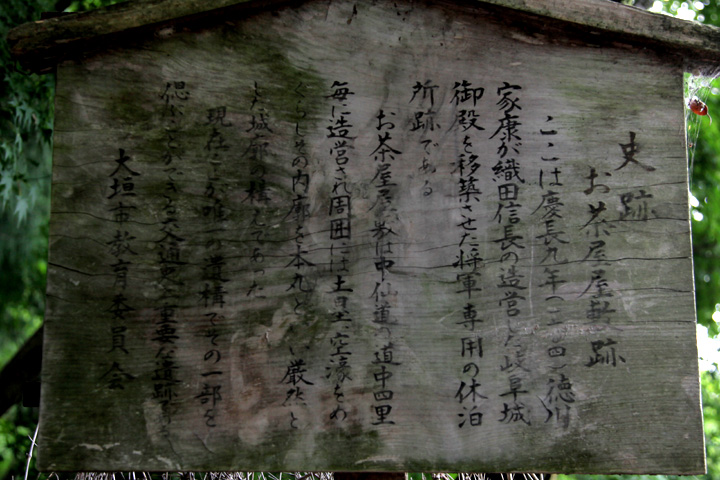 史跡
お茶屋屋敷跡
ここは慶長九年(一六〇四)徳川
家康が織田信長の造営した岐阜城
御殿を移築させた将軍専用の休泊
所跡である
お茶屋屋敷は中仙道の道中四里
毎に造営され周囲には土塁、空濠をめ
ぐらしその内廓を本丸と い厳然と
した城郭の構えであった
現在ここが唯一の遺構でその一部を
偲ぶことができる交通史 重要な遺跡
大垣市教育委員会